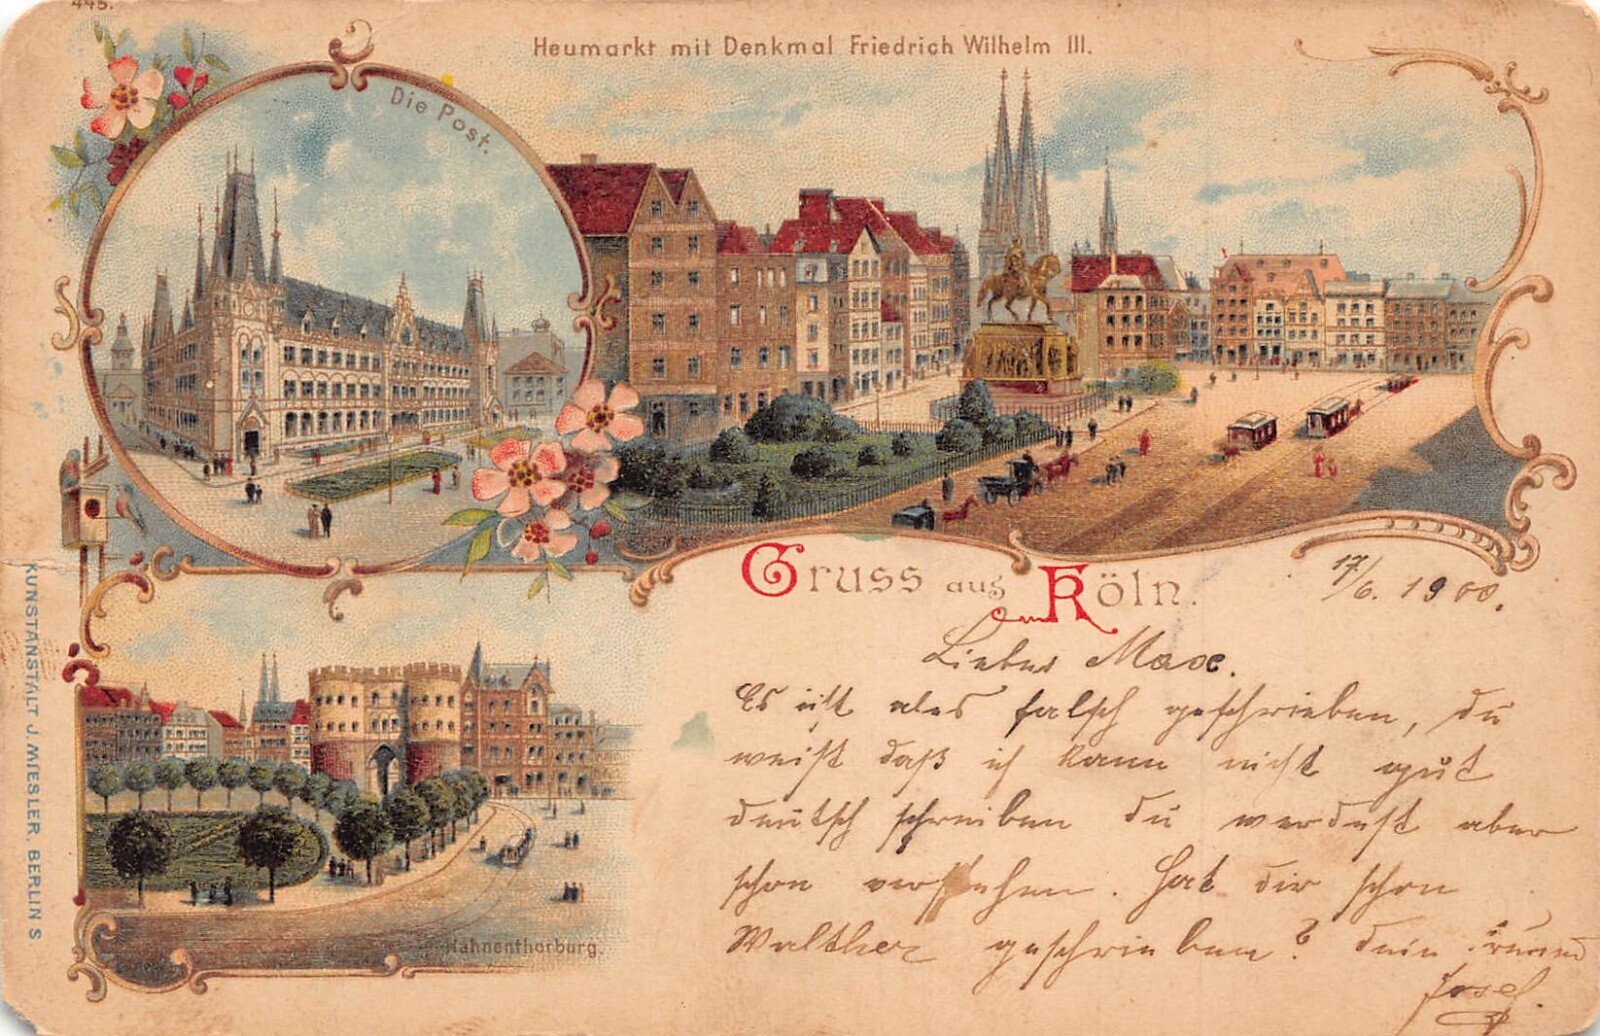 445.
Heumarkt mit Denkmal Friedrich Wilhelm III.
Die Post.
Gruss aus Köln.
17/6. 1900.
Lieber Max.
Es ist ales falsch geschrieben, du
weist daß ich kann nicht gut
deutsch schreiben du werdest aber
schon verstehen. Hat dir schon
Walther geschrieben? dein Freund
Josef.
Hahnenthorburg.
KUNSTANSTALT J. MIESLER, BERLIN S